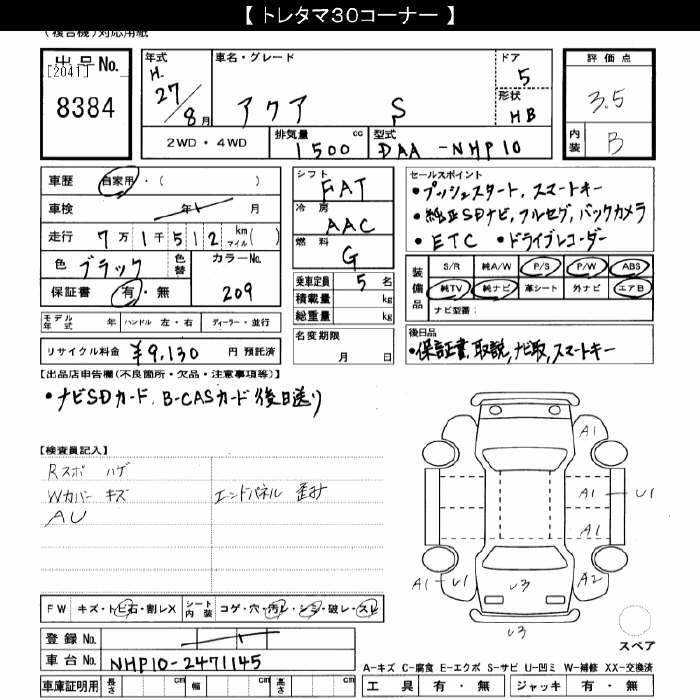 【 トレタマ30コーナー 】
(複合機)対応用紙
出品No.
[2041]
8384
年式 H. 27/8月
車名・グレード アクア S
ドア 5
形状 HB
2WD・4WD
排気量 1500 cc
型式 DAA-NHP10
評価点 3.5
内装 B
車歴 自家用・( )
車検 年 月
走行 7万1千512 km マイル( )
色 ブラック 色替
カラーNo. 209
保証書 有・無
モデル年式 年 ハンドル 左・右 ディーラー・並行
リサイクル料金 ¥9,130 円 預託済
シフト FAT
冷房 AAC
燃料 G
乗車定員 5 名
積載量 kg
総重量 kg
名変期限 月 日
セールスポイント
・プッシュスタート, スマートキー
・純正SDナビ, フルセグ, バックカメラ
・ETC ・ドライブレコーダー
装備品
S/R 純A/W P/S P/W ABS
純TV 純ナビ 革シート 外ナビ エアB
ナビ型番:
後日品
・保証書, 取説, ナビ取, スマートキー
【出品店申告欄(不良箇所・欠品・注意事項等)】
・ナビSDカード, B-CASカード後日送り
【検査員記入】
Rスポ ハゲ
Wカバー キズ エンドパネル 歪み
AU
A1
A1 U1
A1
A1 U1
A2
U3
U3
スペア
FW キズ・トビ石・割レX シート内装 コゲ・穴・汚レ・シミ・破レ・スレ
登録No.
車台No. NHP10-2471145
車庫証明用 長さ cm 幅 cm 高さ cm
A-キズ C-腐食 E-エクボ S-サビ U-凹ミ W-補修 XX-交換済
工具 有・無 ジャッキ 有・無